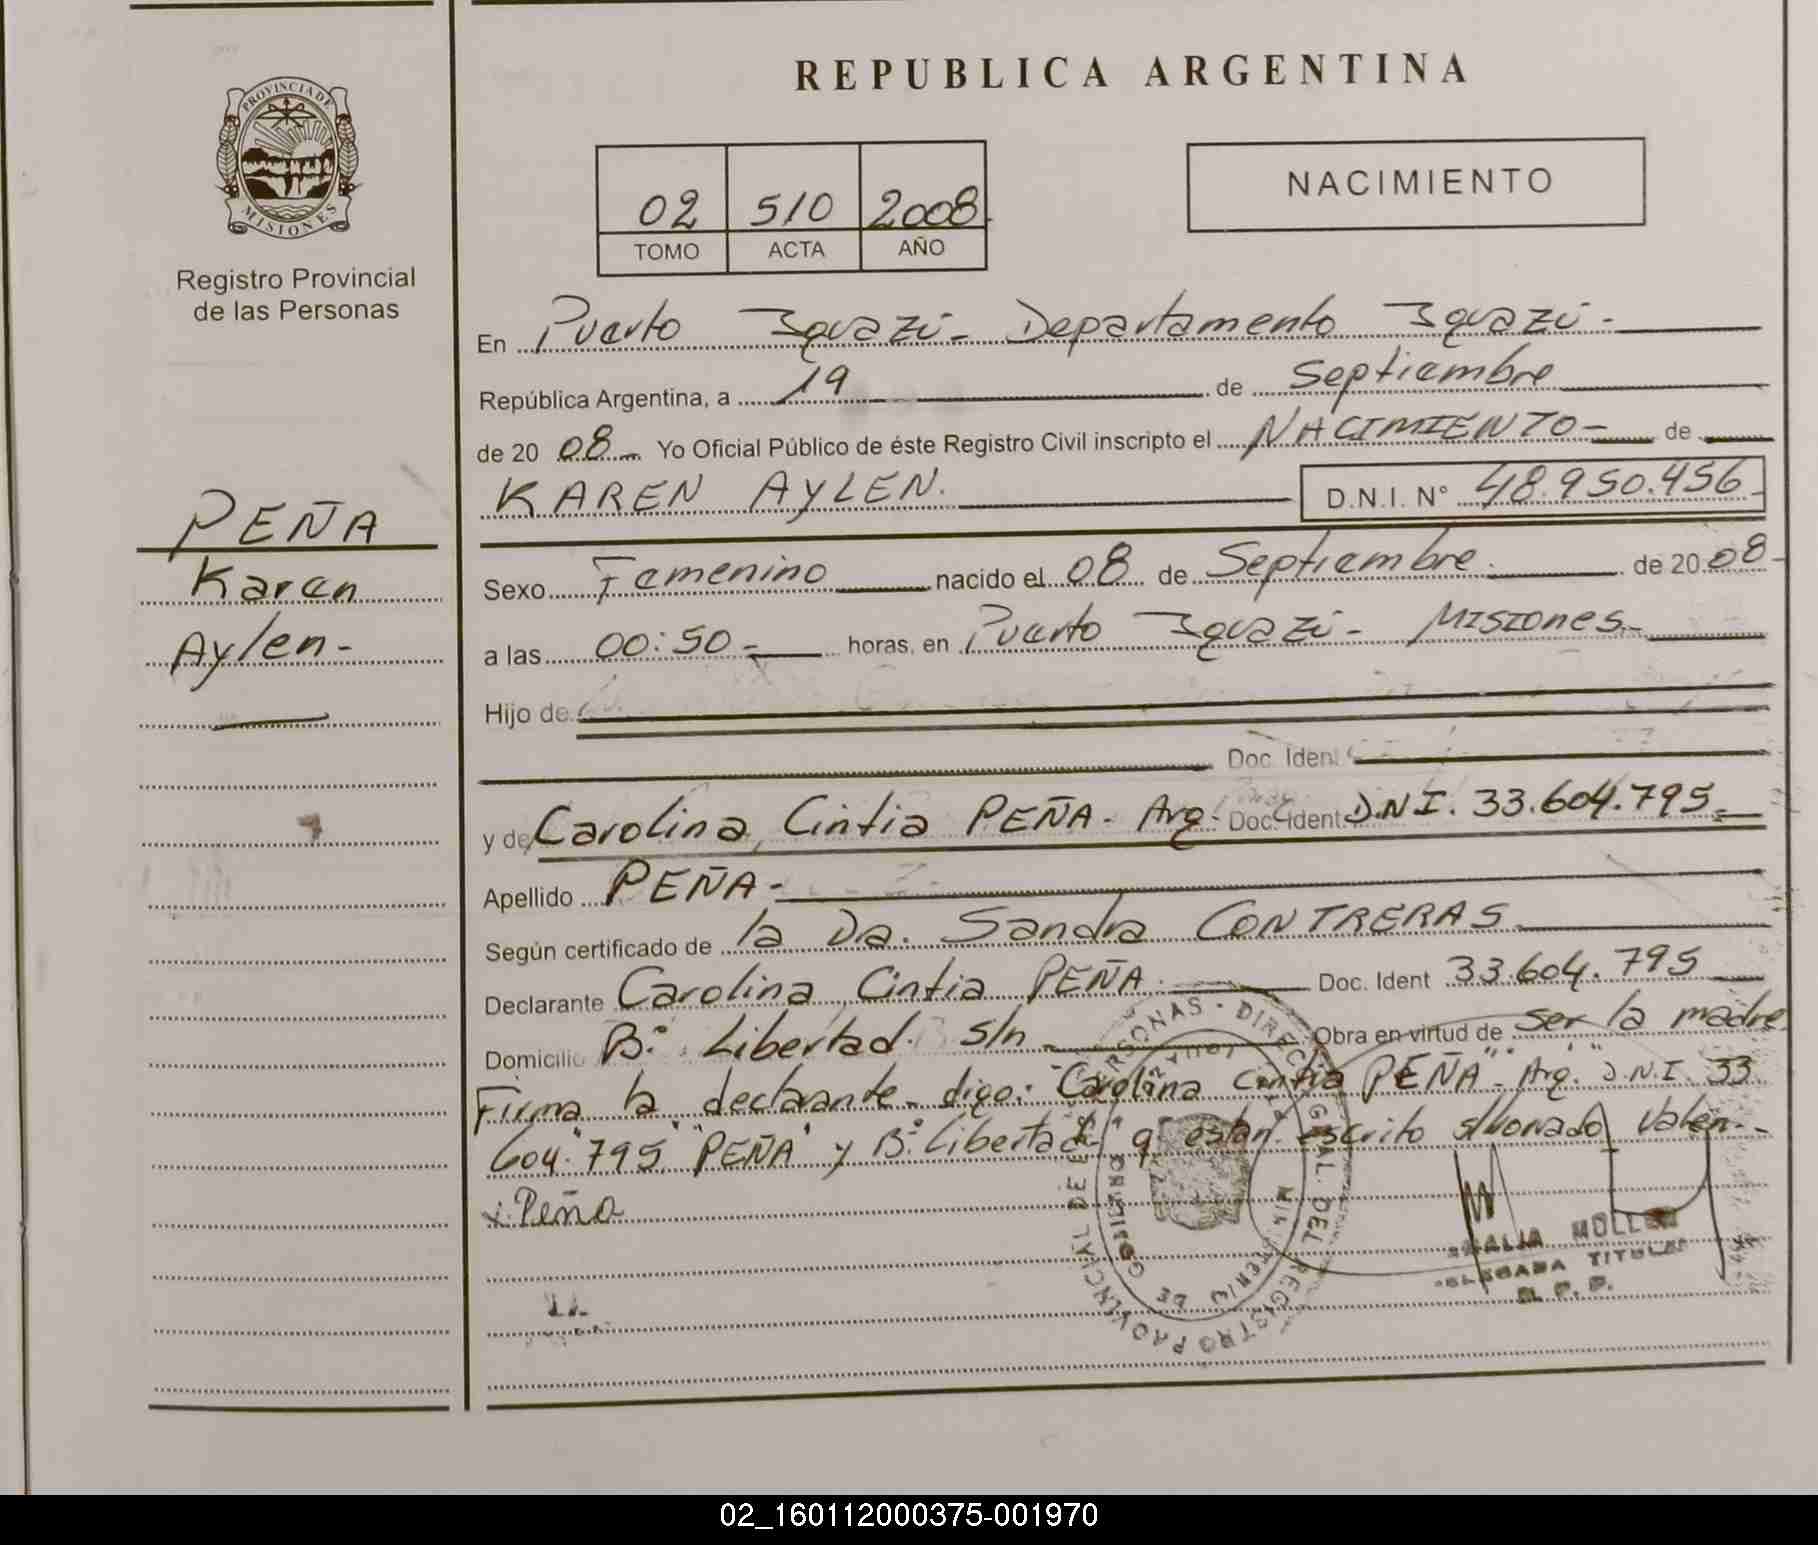 PROVINCIA DE
MISIONES
Registro Provincial
de las Personas
PEÑA
Karen
Aylen-
REPUBLICA ARGENTINA
02 510 2008
TOMO ACTA AÑO
NACIMIENTO
En Puerto Iguazú- Departamento Iguazú-
República Argentina, a 19 de Septiembre
de 20 08 Yo Oficial Público de éste Registro Civil inscripto el NACIMIENTO- de
KAREN AYLEN. D.N.I. N° 48.950.456
Sexo Femenino nacido el 08 de Septiembre. de 20 08-
a las 00:50- horas, en Puerto Iguazú- Misiones.-
Hijo de
Doc. Ident
y de Carolina, Cintia PEÑA- Arg- Doc. Ident D.N.I. 33.604.795-
Apellido PEÑA-
Según certificado de la Da. Sandra CONTRERAS
Declarante Carolina, Cintia PEÑA Doc. Ident 33.604.795
Domicilio B° Libertad. s/n Obra en virtud de ser la madre
Firma la declarante- digo: "Carolina Cintia PEÑA"-"Arg." D.N.I. 33
604."795" "PEÑA" y B° Libertad" q' están escrito s/borrado Valen-
x Peña
REGISTRO PROVINCIAL DE LAS PERSONAS - DIRECC GRAL. DEL
MINISTERIO DE GOBIERNO
MULLER
DELEGADA TITULAR
R. P. P.
02_160112000375-001970